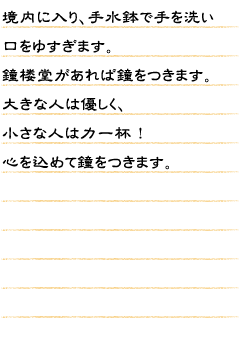 境内に入り、手水鉢で手を洗い
口をゆすぎます。
鐘楼堂があれば鐘をつきます。
大きな人は優しく、
小さな人は力一杯！
心を込めて鐘をつきます。